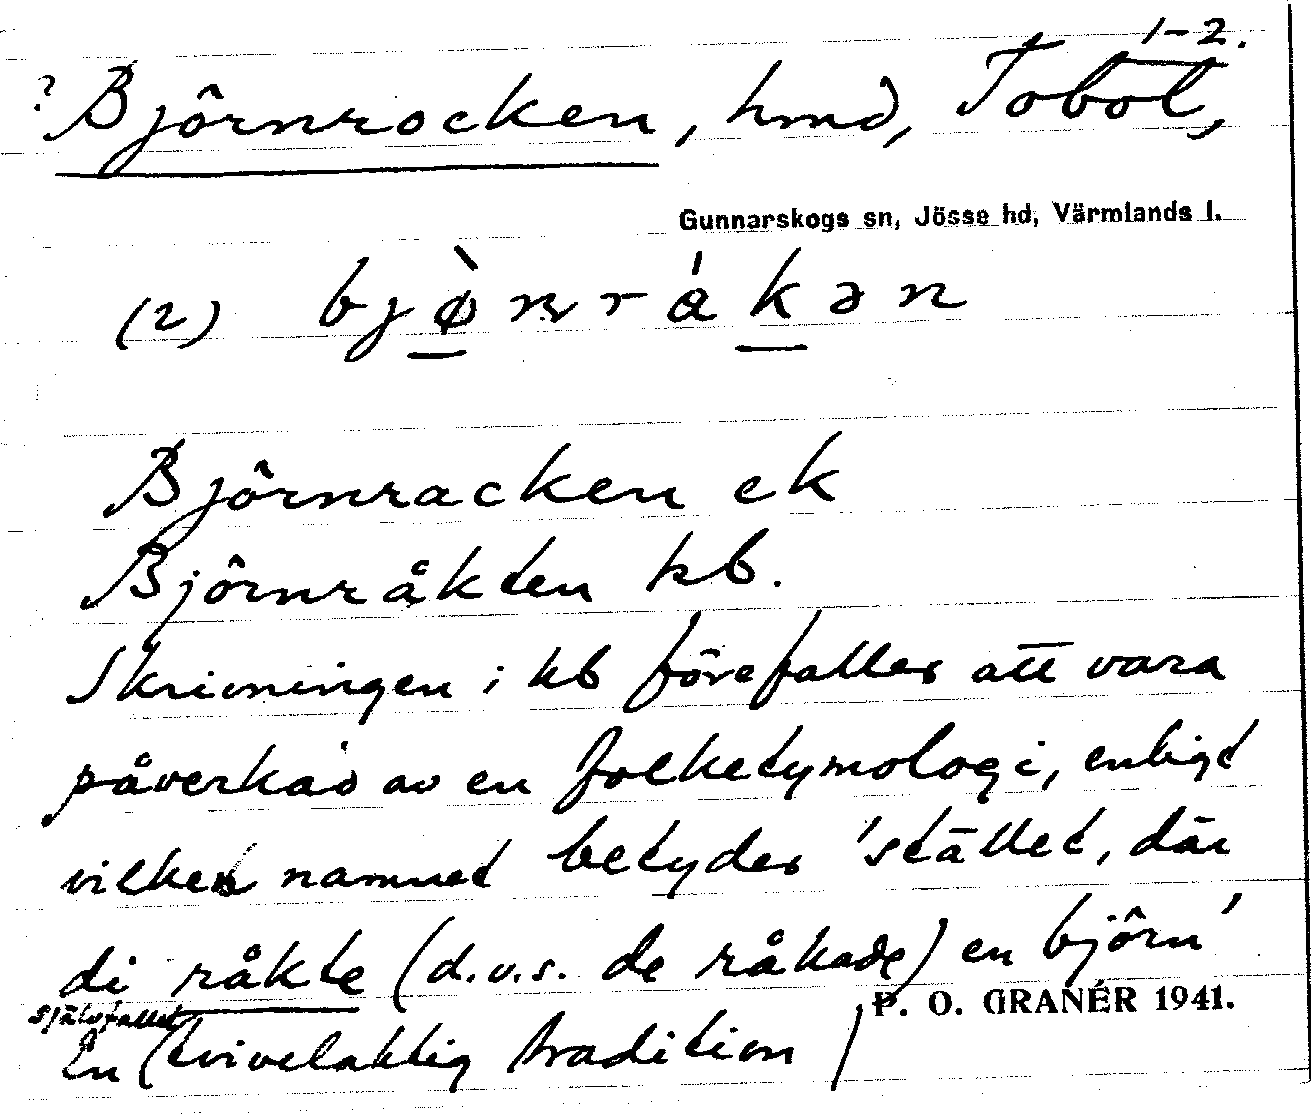 1-2.
? Björnrocken, hmd, Tobol,
Gunnarskogs sn, Jösse hd, Värmlands l.
(2) bjø̀nråkən
Björnracken ek
Björnråkten kb.
Skrivningen i kb förefaller att vara
påverkad av en folketymologi, enligt
vilken namnet betyder 'stället, där
di råkte (d.v.s. de råkade) en björn'
självfallet
En (tvivelaktig tradition /
P. O. GRANÉR 1941.